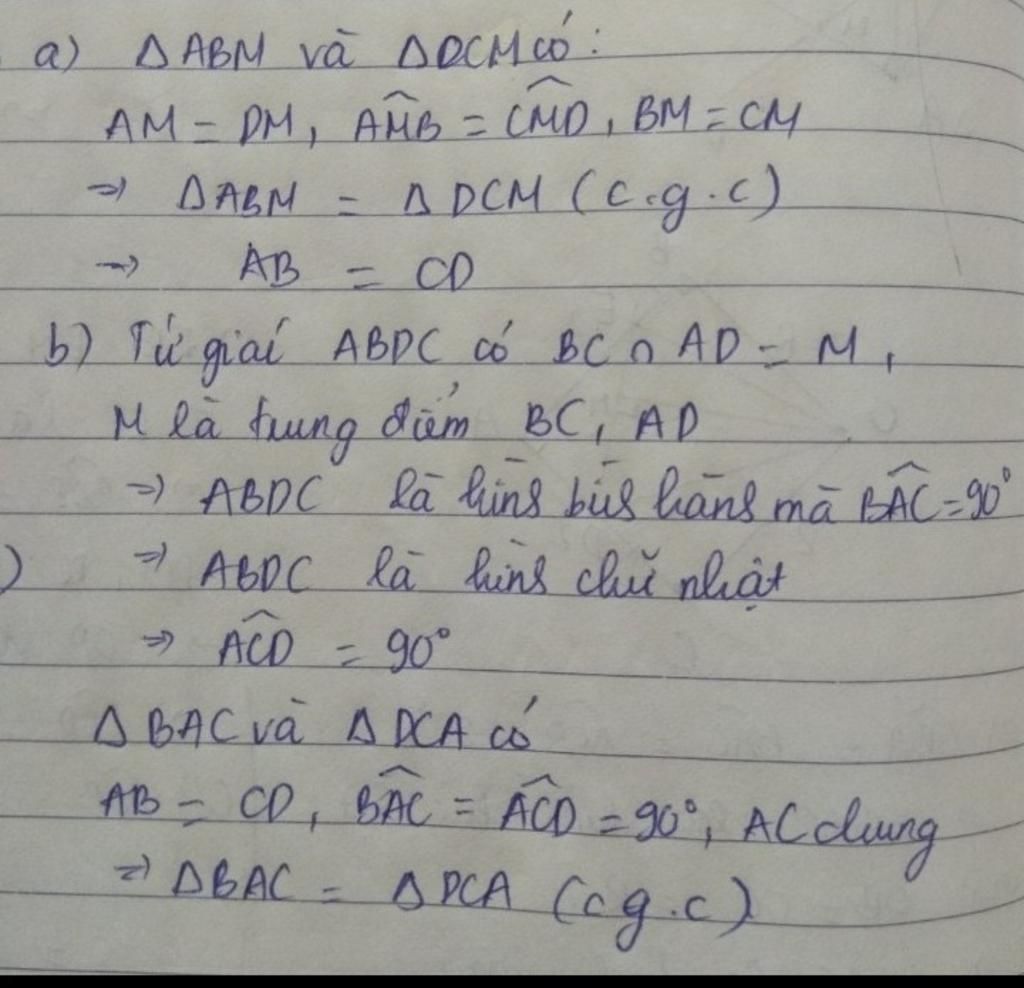 a) ΔABM và ΔDCM có:
AM = DM, AM̂B = CM̂D, BM = CM
⇒ ΔABM = ΔDCM (c.g.c)
→ AB = CD
b) Tứ giaí ABDC có BC ∩ AD = M,
M là trung điểm BC, AD
⇒ ABDC là hình bình hành mà BÂC = 90°
) ⇒ ABDC là hình chữ nhật
⇒ AĈD = 90°
Δ BAC và Δ DCA có
AB = CD, BÂC = AĈD = 90°, AC chung
⇒ ΔBAC = ΔDCA (c g.c)